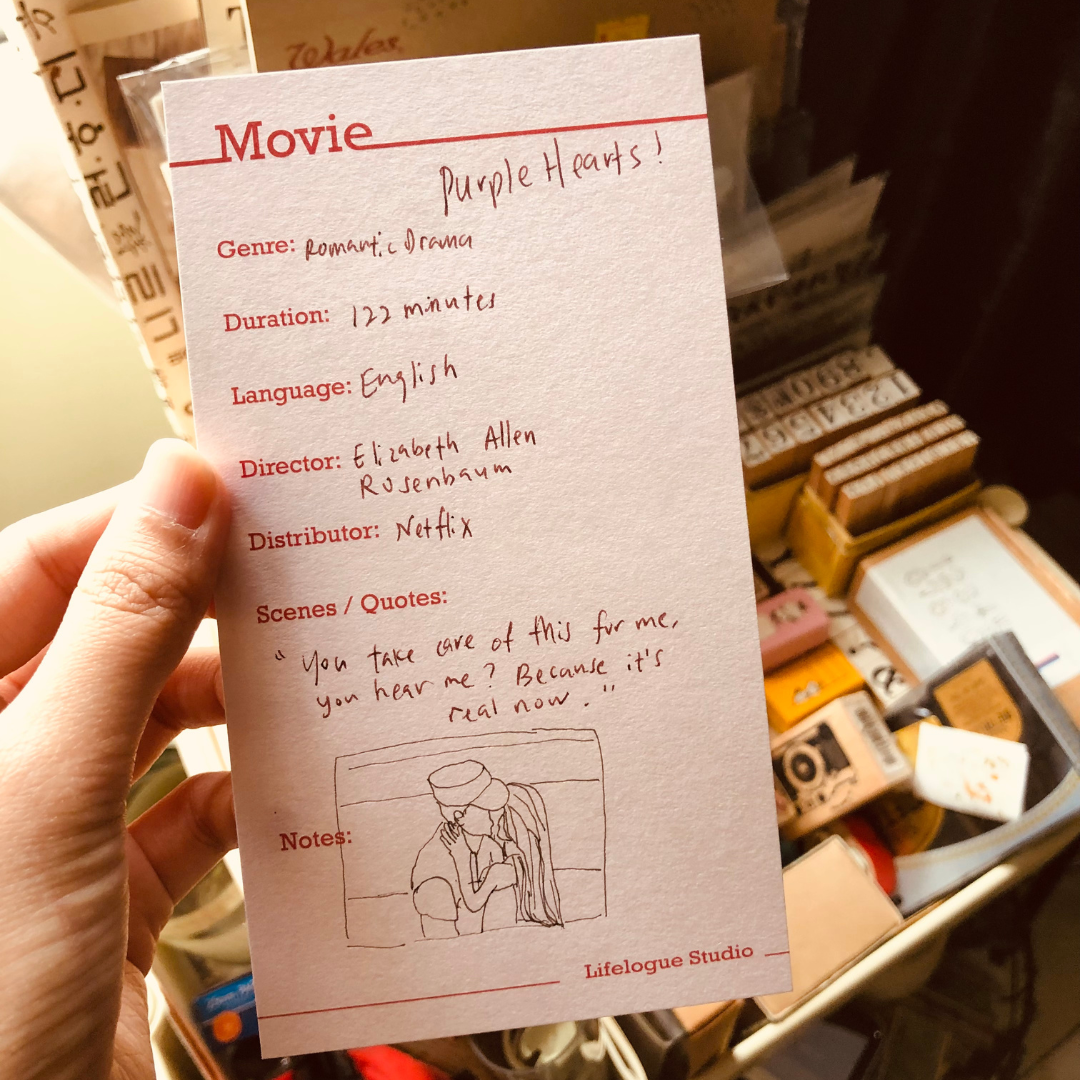 Wales.
Movie
Purple Hearts!
Genre: Romantic Drama
Duration: 122 minutes
Language: English
Director: Elizabeth Allen
Rosenbaum
Distributor: Netflix
Scenes / Quotes:
"You take care of this for me,
you hear me? Because it's
real now."
Notes:
Lifelogue Studio